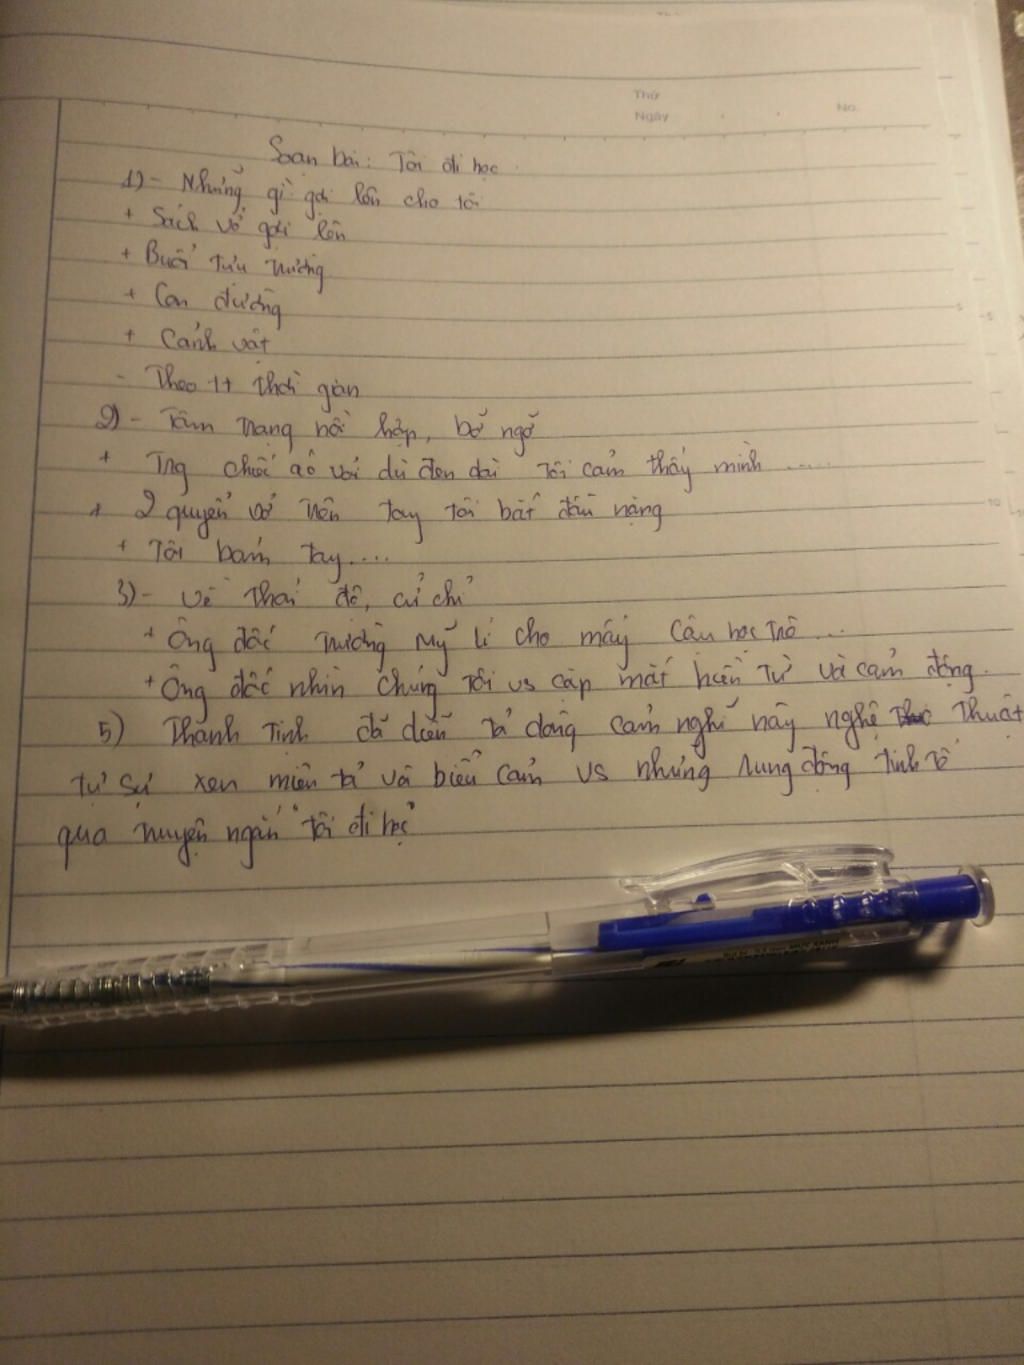 Thứ
Ngày
No.
Soạn bài: Tôi đi học
1) - Những gì gợi lên cho tôi
+ Sách vở gợi lên
+ Buổi tựu trường
+ Con đường
+ Cảnh vật
- Theo tt thời gian
2) - Tâm trạng hồi hộp, bỡ ngỡ
+ Trg chiếc áo vải dù đen dài tôi cảm thấy mình .....
+ 2 quyển vở trên tay tôi bắt đầu nặng
+ Tôi bặm tay....
3) - Về thái độ, cử chỉ
+ Ông đốc trường Mỹ Lí cho mấy cậu học trò ...
+ Ông đốc nhìn chúng tôi vs cặp mắt hiền từ và cảm động.
5) Thanh Tịnh đã diễn tả dòng cảm nghĩ này nghệ thuật
tự sự xen miên tả và biểu cảm vs những rung động tinh tế
qua truyện ngắn "tôi đi học"